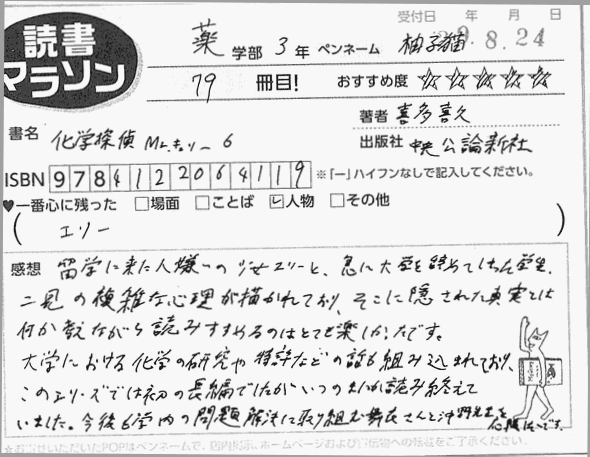 読書
マラソン
受付日 年 月 日
29.8.24
薬 学部 3年 ペンネーム 柚子猫
79 冊目! おすすめ度 ☆☆☆☆☆
著者 喜多喜久
書名 化学探偵Mr.キュリー6
出版社 中央公論新社
ISBN 9784122064119 ※「ー」ハイフンなしで記入してください。
♥一番心に残った □場面 □ことば ☑人物 □その他
( エリー )
感想 留学に来た人嫌いの少女エリーと、急に大学を辞めてしまった学生、
二見の複雑な心理が描かれており、そこに隠された真実とは
何か考えながら読みすすめるのはとても楽しかったです。
大学における化学の研究や特許などの話も組み込まれており、
このシリーズでは初の長編でしたがいつのまにか読み終えて
いました。今後も学内の問題解決に取り組む舞衣さんと沖野先生を
応援したいです。
☆お寄せいただいたPOPはペンネームで、店内掲示、ホームページおよび宣伝物への転載をご了承ください。